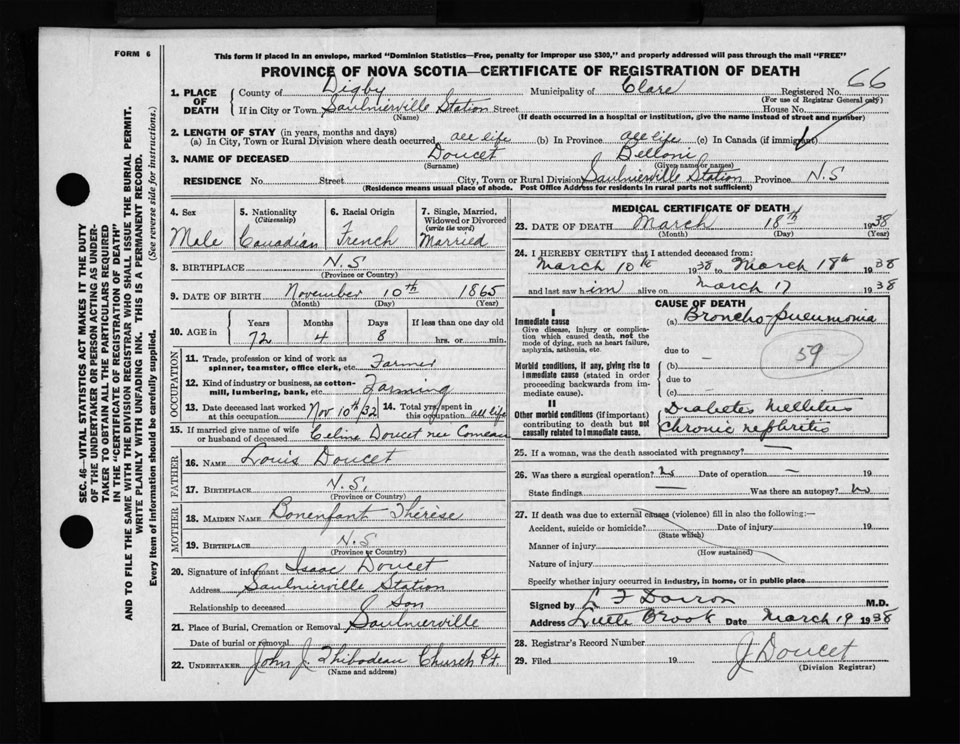 FORM 6
This form if placed in an envelope, marked "Dominion Statistics—Free, penalty for improper use $300," and properly addressed will pass through the mail "FREE"
PROVINCE OF NOVA SCOTIA—CERTIFICATE OF REGISTRATION OF DEATH
SEC. 46—VITAL STATISTICS ACT MAKES IT THE DUTY
OF THE UNDERTAKER OR PERSON ACTING AS UNDER-
TAKER TO OBTAIN ALL THE PARTICULARS REQUIRED
IN THE "CERTIFICATE OF REGISTRATION OF DEATH"
AND TO FILE THE SAME WITH THE DIVISION REGISTRAR WHO SHALL ISSUE THE BURIAL PERMIT.
WRITE PLAINLY WITH UNFADING INK. THIS IS A PERMANENT RECORD.
Every item of information should be carefully supplied. (See reverse side for instructions.)
1. PLACE OF DEATH County of Digby Municipality of Clare Registered No. 66
(For use of Registrar General only)
If in City or Town Saulnierville Station Street House No.
(Name) (If death occurred in a hospital or institution, give the name instead of street and number)
2. LENGTH OF STAY (in years, months and days)
(a) In City, Town or Rural Division where death occurred all life (b) In Province all life (c) In Canada (if immigrant)
3. NAME OF DECEASED Doucet Belloni
(Surname) (Given name or names)
RESIDENCE No. Street City, Town or Rural Division Saulnierville Station Province N.S
(Residence means usual place of abode. Post Office Address for residents in rural parts not sufficient)
4. Sex Male
5. Nationality (Citizenship) Canadian
6. Racial Origin French
7. Single, Married, Widowed or Divorced (write the word) Married
8. BIRTHPLACE N.S
(Province or Country)
9. DATE OF BIRTH November 10th 1865
(Month) (Day) (Year)
10. AGE in Years Months Days If less than one day old
72 4 8 hrs. or min.
OCCUPATION
11. Trade, profession or kind of work as spinner, teamster, office clerk, etc. Farmer
12. Kind of industry or business, as cotton-mill, lumbering, bank, etc. Farming
13. Date deceased last worked at this occupation Nov 10th/32 14. Total yrs. spent in this occupation all life
15. If married give name of wife or husband of deceased Celine Doucet nee Comeau
FATHER
16. NAME Louis Doucet
17. BIRTHPLACE N.S.
(Province or Country)
MOTHER
18. MAIDEN NAME Bonenfant Thérèse
19. BIRTHPLACE N.S
(Province or Country)
20. Signature of informant Isaac Doucet
Address Saulnierville Station
Relationship to deceased Son
21. Place of Burial, Cremation or Removal Saulnierville
Date of burial or removal
22. UNDERTAKER John J. Thibodeau Church Pt.
(Name and address)
MEDICAL CERTIFICATE OF DEATH
23. DATE OF DEATH March 18th 1938
(Month) (Day) (Year)
24. I HEREBY CERTIFY that I attended deceased from:
March 10th 1938 to March 18th 1938
and last saw him alive on March 17 1938
CAUSE OF DEATH
I
Immediate cause (a) Broncho-pneumonia
Give disease, injury or complication which caused death, not the mode of dying, such as heart failure, asphyxia, asthenia, etc.
due to –
59
Morbid conditions, if any, giving rise to immediate cause (stated in order proceeding backwards from immediate cause).
(b)
due to
(c)
II
Other morbid conditions (if important) contributing to death but not causally related to immediate cause.
Diabetes Mellitus
Chronic nephritis
25. If a woman, was the death associated with pregnancy? –
26. Was there a surgical operation? No Date of operation – 19
State findings – Was there an autopsy? No
27. If death was due to external causes (violence) fill in also the following:—
Accident, suicide or homicide? Date of injury 19
(State which)
Manner of injury
(How sustained)
Nature of injury
Specify whether injury occurred in industry, in home, or in public place
Signed by M.D.
Address Little Brook Date March 19 1938
28. Registrar's Record Number
29. Filed 19 J Doucet
(Division Registrar)